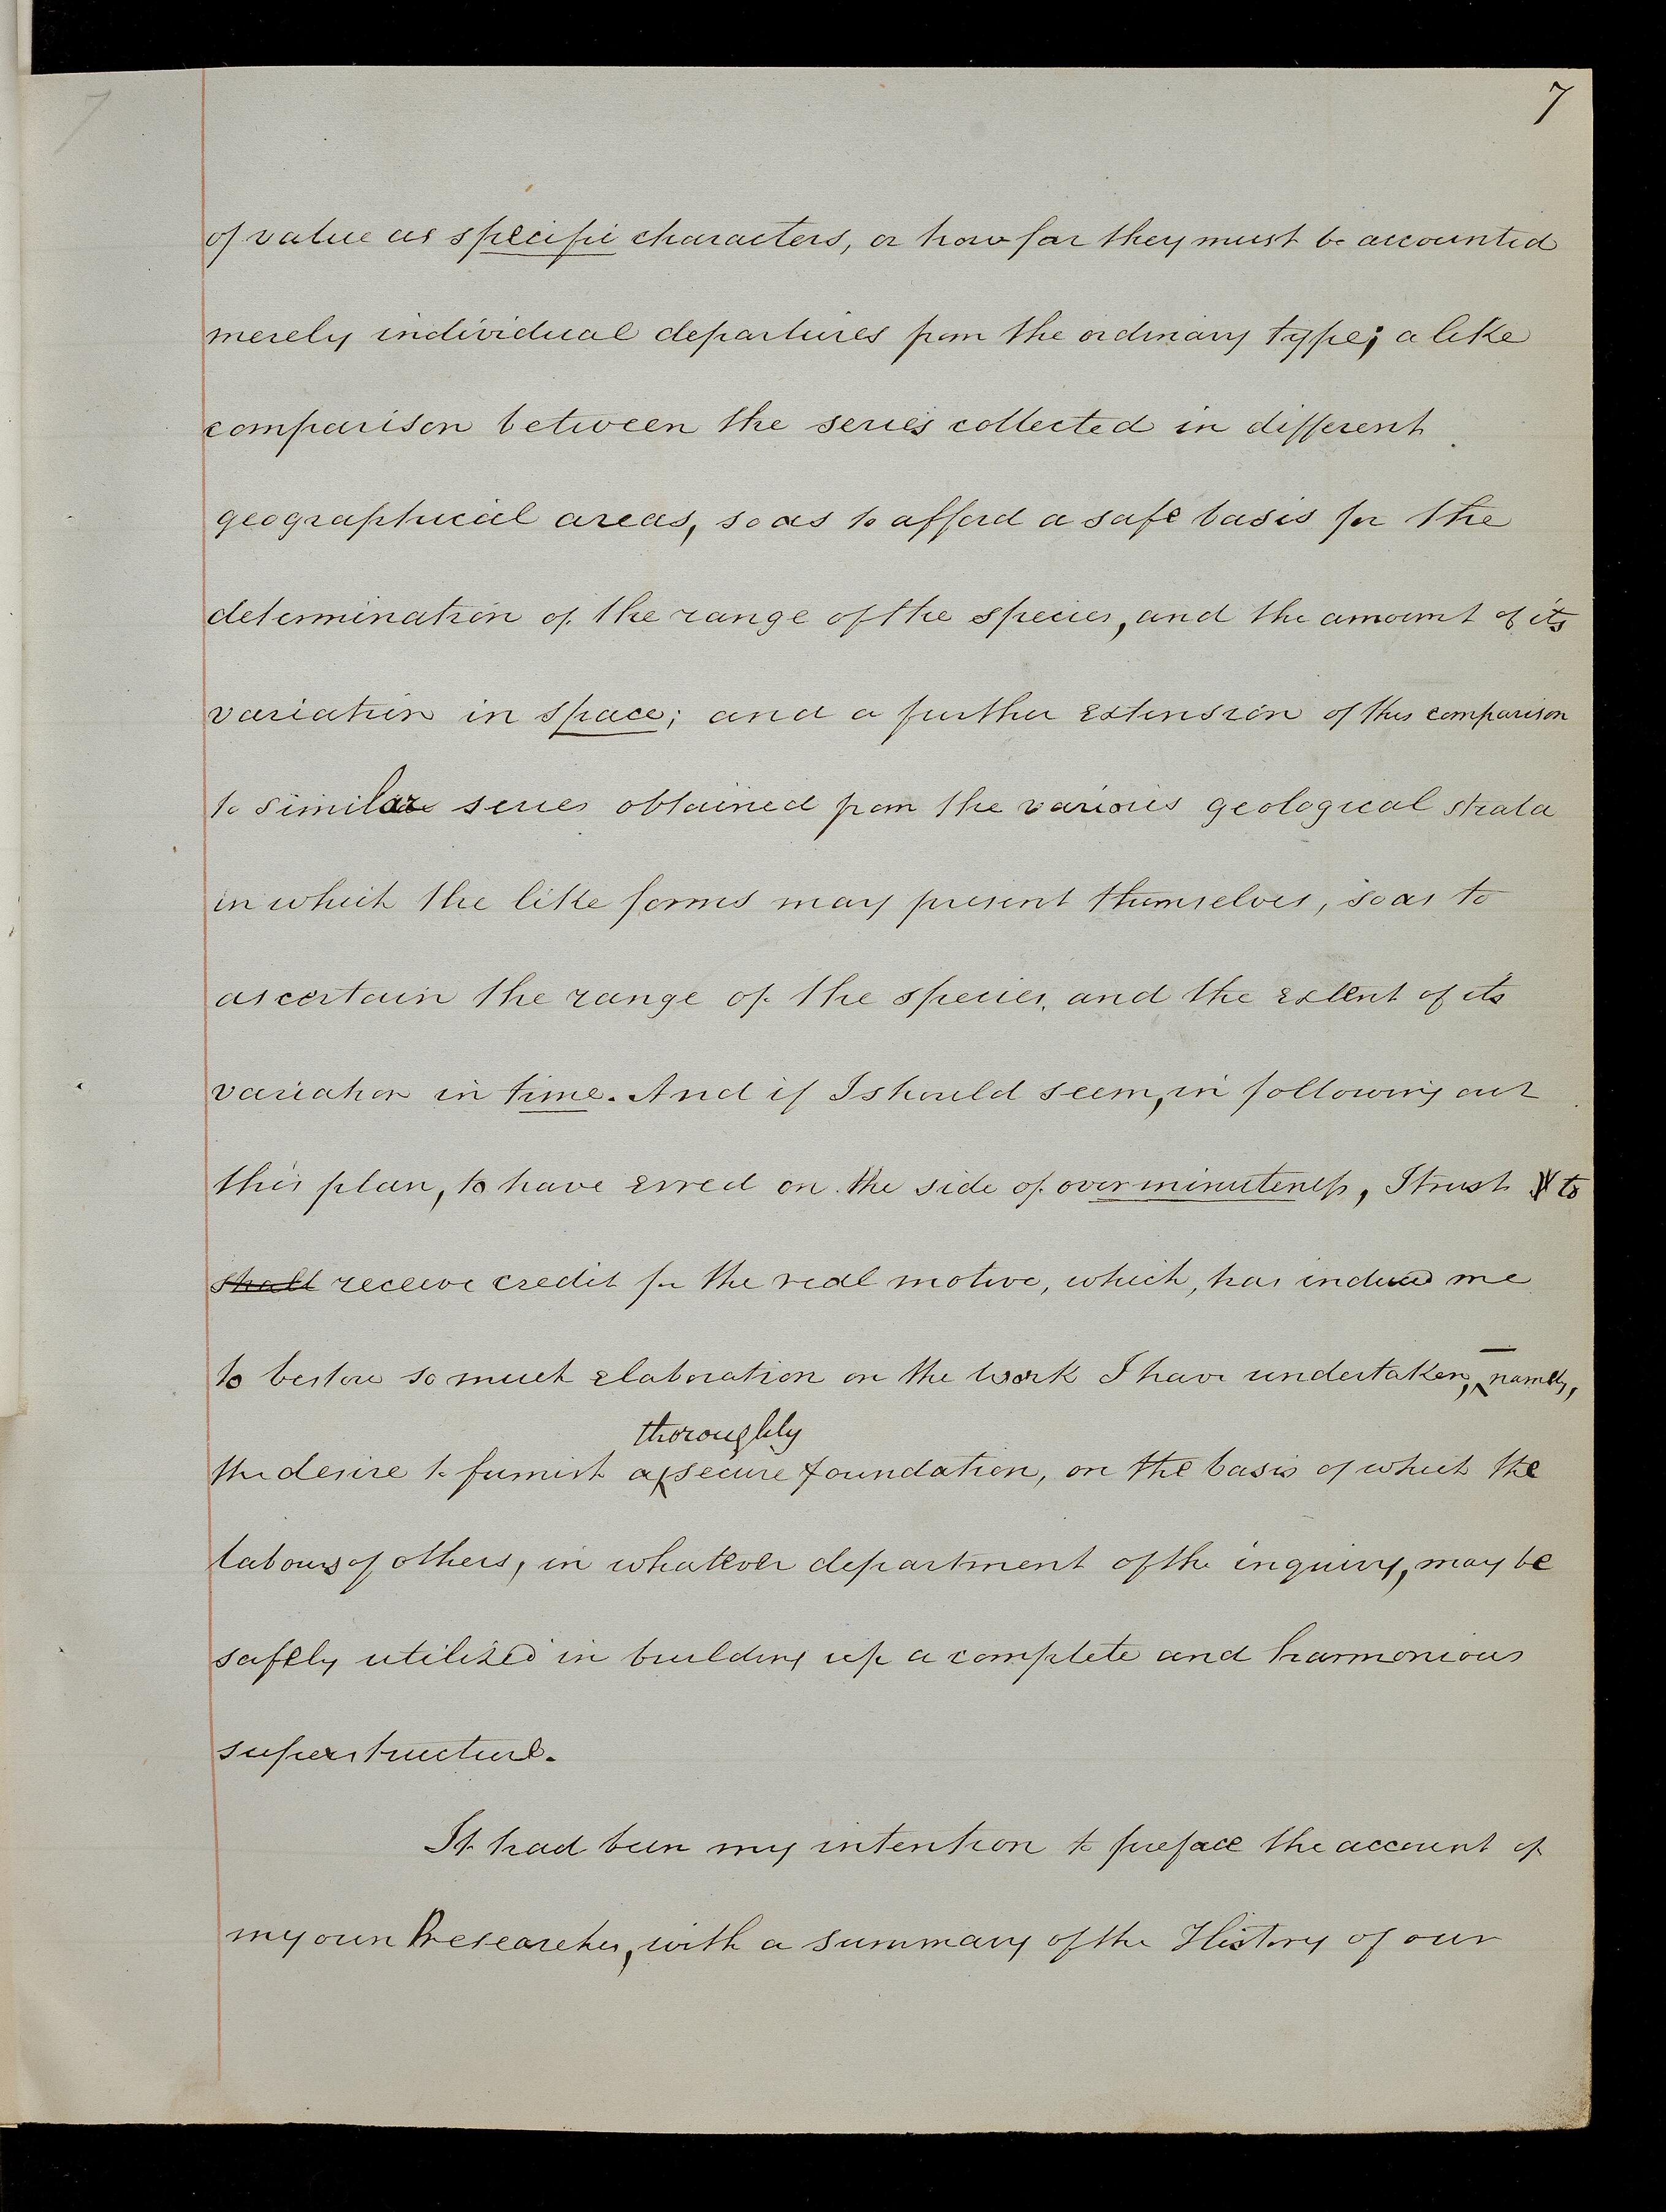 7
7
of value as specific characters, or how far they must be accounted
merely individual departures from the ordinary type; a like
comparison between the series collected in different
geographical areas, so as to afford a safe basis for the
determination of the range of the species, and the amount of its
variation in space; and a further extension of this comparison
to similar series obtained from the various geological strata
in which the like forms may present themselves, so as to
ascertain the range of the species, and the extent of its
variation in time. And if I should seem, in following out
this plan, to have erred on the side of over minuteness, I trust to
shall receive credit for the real motive, which, has induced me
to bestow so much elaboration on the work I have undertaken, — namely,
thoroughly
the desire to furnish a secure foundation, on the basis of which the
labours of others, in whatever department of the inquiry, may be
safely utilized in building up a complete and harmonious
superstructure.
It had been my intention to preface the account of
my own Researches, with a summary of the History of our